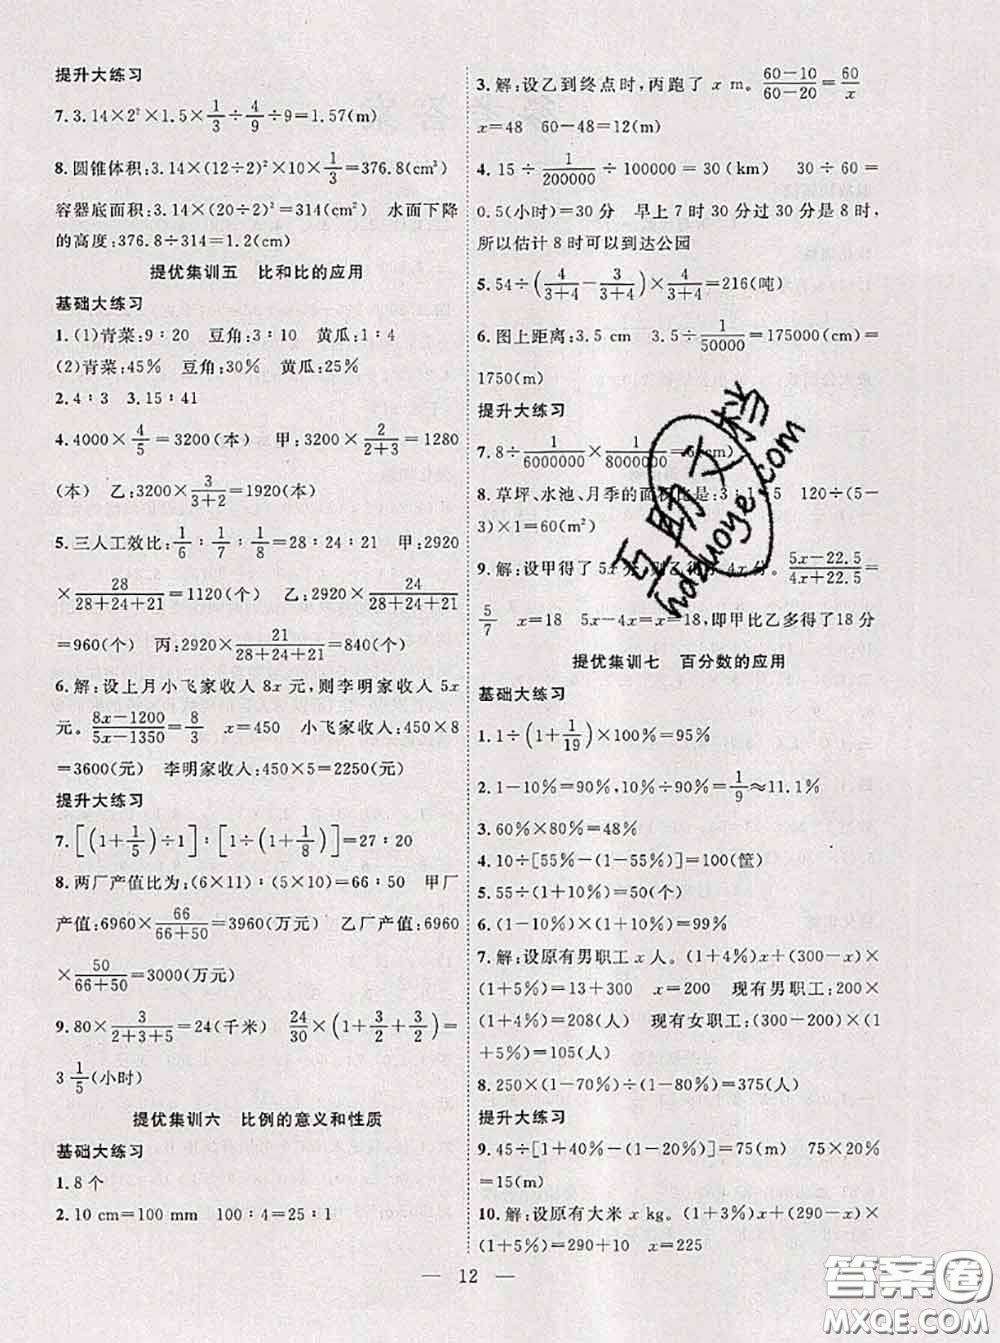 提升大练习
7.3.14×2²×1.5×1/3÷4/9÷9=1.57(m)
8.圆锥体积:3.14×(12÷2)²×10×1/3=376.8(cm³)
容器底面积:3.14×(20÷2)²=314(cm²)　水面下降
的高度:376.8÷314=1.2(cm)
提优集训五　比和比的应用
基础大练习
1.(1)青菜:9∶20　豆角:3∶10　黄瓜:1∶4
(2)青菜:45%　豆角:30%　黄瓜:25%
2.4∶3　3.15∶41
4.4000×4/5=3200(本)　甲:3200×2/(2+3)=1280
(本)　乙:3200×3/(3+2)=1920(本)
5.三人工效比:1/6∶1/7∶1/8=28∶24∶21　甲:2920
×28/(28+24+21)=1120(个)　乙:2920×24/(28+24+21)
=960(个)　丙:2920×21/(28+24+21)=840(个)
6.解:设上月小飞家收人 8x 元,则李明家收人 5x
元。(8x-1200)/(5x-1350)=8/3　x=450　小飞家收人:450×8
=3600(元)　李明家收人:450×5=2250(元)
提升大练习
7.[(1+1/5)÷1]∶[1÷(1+1/8)]=27∶20
8.两厂产值比为:(6×11)∶(5×10)=66∶50　甲厂
产值:6960×66/(66+50)=3960(万元)　乙厂产值:6960
×50/(66+50)=3000(万元)
9.80×3/(2+3+5)=24(千米)　24/30×(1+3/2+3/2)=
3 1/5(小时)
提优集训六　比例的意义和性质
基础大练习
1.8个
2.10 cm=100 mm　100∶4=25∶1
3.解:设乙到终点时,丙跑了 x m。(60-10)/(60-20)=60/x
x=48　60-48=12(m)
4.15÷1/200000÷100000=30(km)　30÷60=
0.5(小时)=30分　早上7时30分过30分是8时,
所以估计8时可以到达公园
5.54÷(4/(3+4)-3/(3+4))×4/(3+4)=216(吨)
6.图上距离:3.5 cm　3.5÷1/50000=175000(cm)=
1750(m)
提升大练习
7.8÷1/6000000×1/8000000=6(cm)
8.草坪、水池、月季的面积比是:3∶1∶5　120÷(5-
3)×1=60(m²)
9.解:设甲得了 5x 分,则乙得了 4x 分。(5x-22.5)/(4x+22.5)=
5/7　x=18　5x-4x=x=18,即甲比乙多得了18分
提优集训七　百分数的应用
基础大练习
1.1÷(1+1/19)×100%=95%
2.1-10%=90%　10%÷90%=1/9≈11.1%
3.60%×80%=48%
4.10÷[55%-(1-55%)]=100(筐)
5.55÷(1+10%)=50(个)
6.(1-10%)×(1+10%)=99%
7.解:设原有男职工 x 人。(1+4%)x+(300-x)×
(1+5%)=300+13　x=200　现有男职工:200×
(1+4%)=208(人)　现有女职工:(300-200)×(1
+5%)=105(人)
8.250×(1-70%)÷(1-80%)=375(人)
提升大练习
9.45÷[1+40%-(1-20%)]=75(m)　75×20%
=15(m)
10.解:设原有大米 x kg。(1+20%)x+(290-x)
×(1+10%)=290+10　x=225
— 12 —
互助文档
hdzuoye.com
答案圈
MXQE.COM